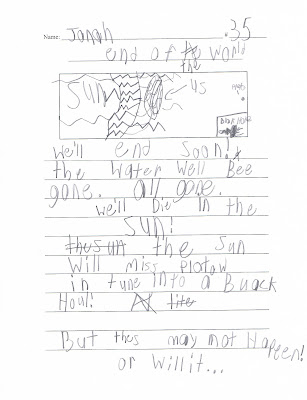 Name: Jonah .35
end of the world
the
SUN us
We'll end Soon!
the Water Well Bee
gone. all gone.
We'll Die In the
SUN!
the Sun
Will miss plotow
in tune into a Buack
Houl!
But thes may not Hapeen!
or will it...